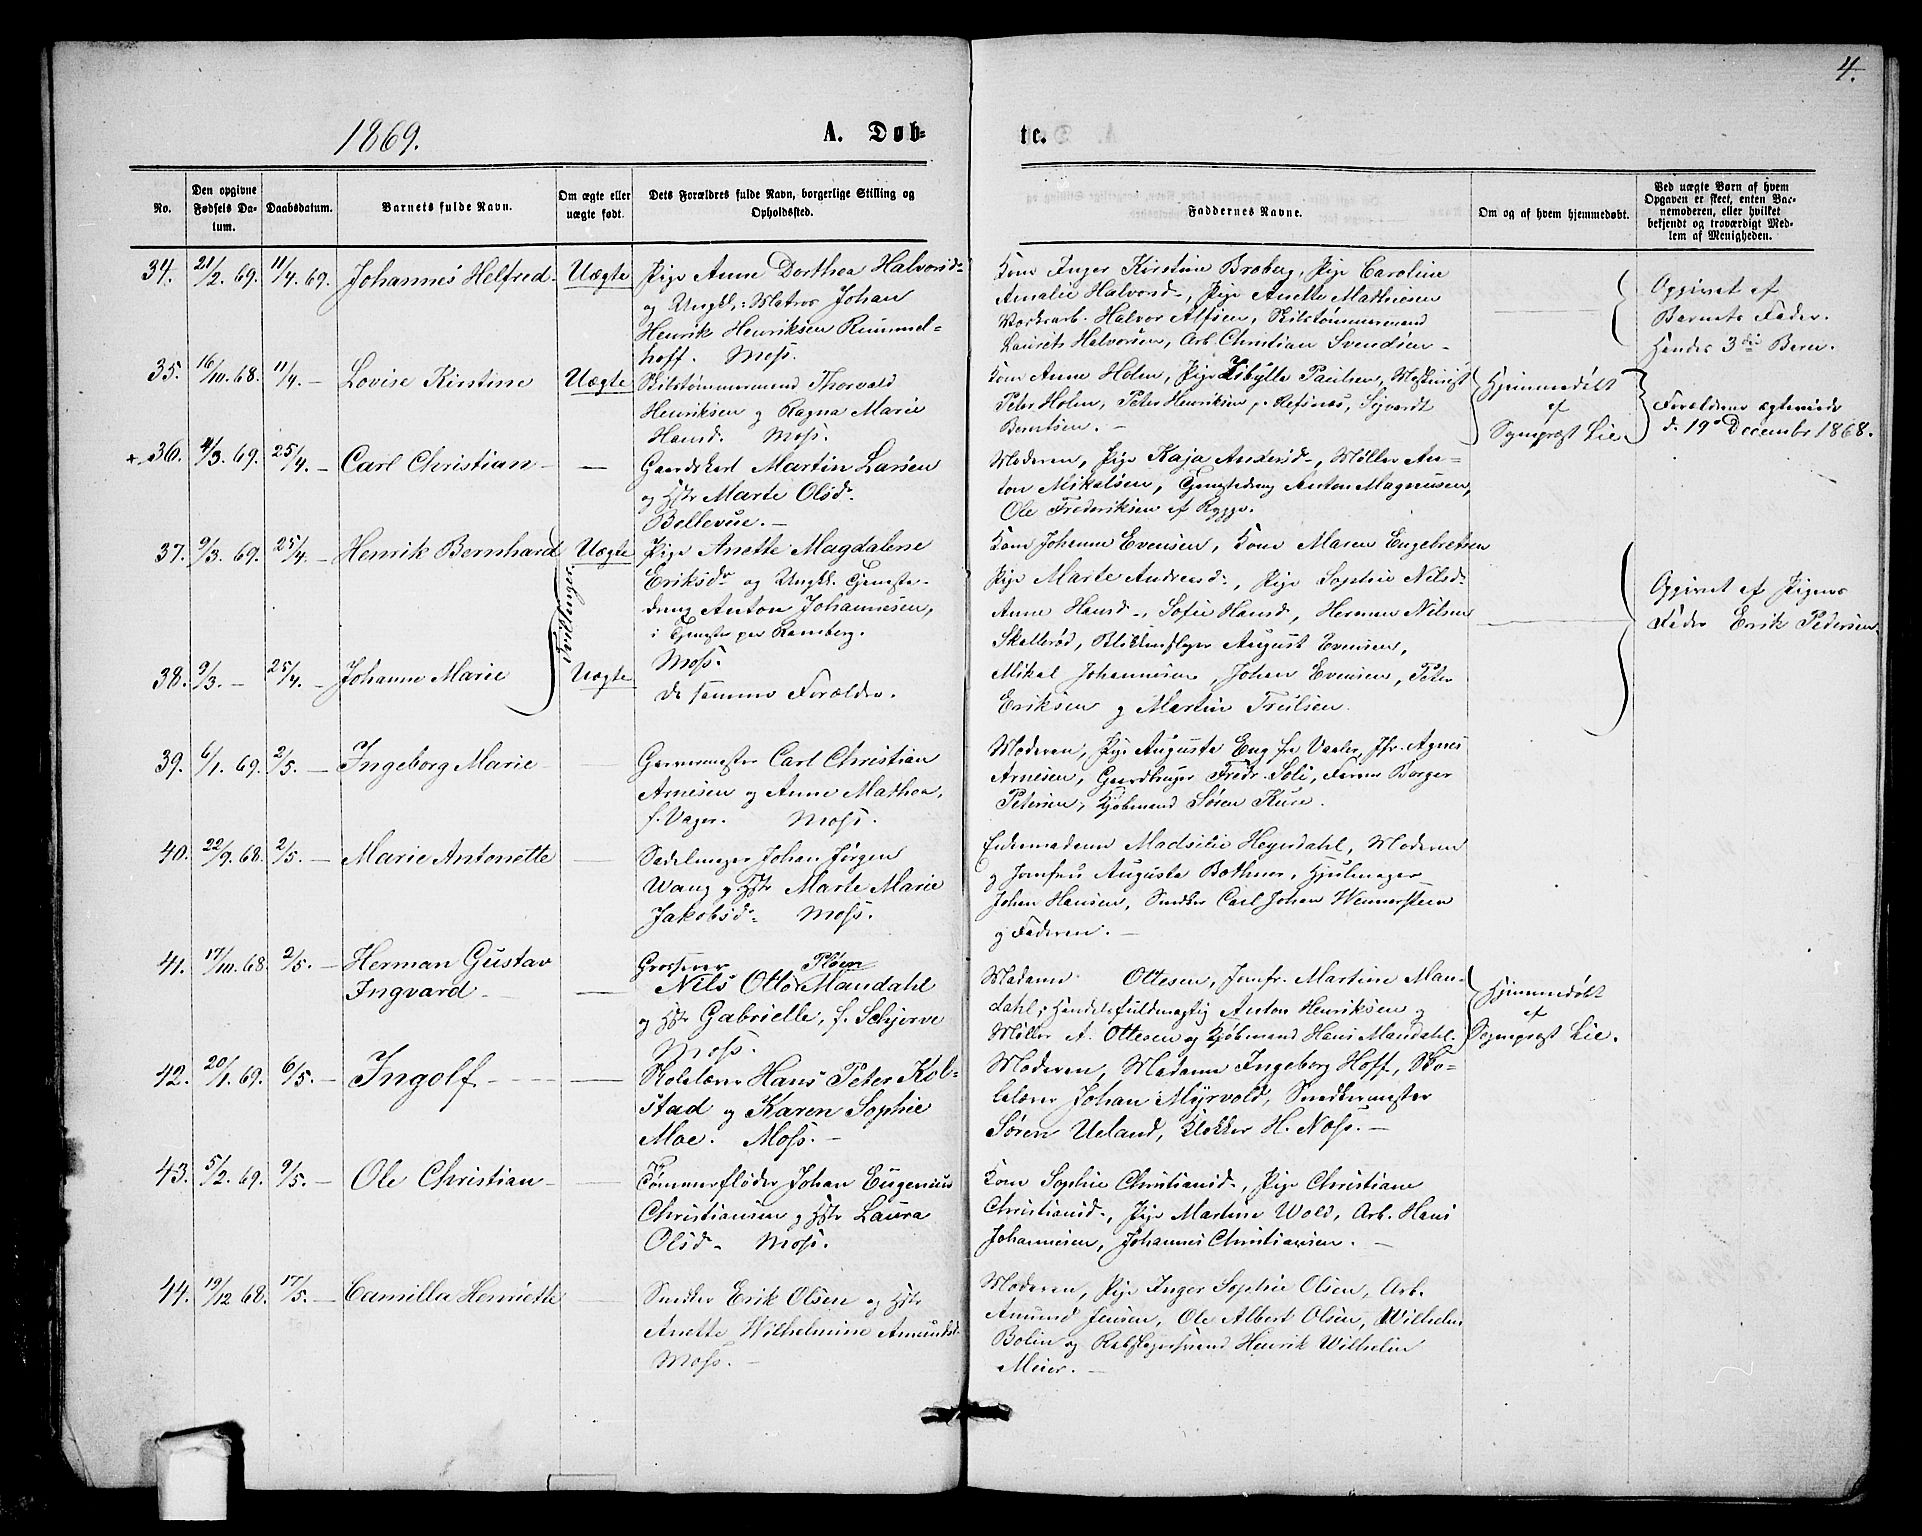 4.
1869.
A. Døb-
te.
No.
Den opgivne Fødsels Datum.
Daabsdatum.
Barnets fulde Navn.
Om ægte eller uægte født.
Dets Forældres fulde Navn, borgerlige Stilling og Opholdssted.
Faddernes Navne.
Om og af hvem hjemmedøbt.
Ved uægte Børn af hvem Opgaven er skeet, enten Barnemoderen, eller hvilket bekjendt og troværdigt Medlem af Menigheden.
34. 21/2 69. 11/4 69. Johannes Helfred Uægte
Pige Anne Dorthea Halvorsd-
og Ungkl., Matros Johan
Henrik Henriksen Rummel-
hoff. Moss.
Kone Inger Kirstine Broberg, Pige Caroline
Amalie Halvorsd-, Pige Anette Mathiesen
Værksarb. Halvor Alfsen, Skibstømmermand
Laurits Halvorsen, Arb. Christian Svendsen -
Opgivet af
Barnets Fader.
Hendes 3die Barn.
35. 16/10. 68. 11/4 - Lovise Kirstine Uægte
Skibstømmermand Thorvald
Henriksen og Ragna Marie
Hansd. Moss.
Kone Anne Holm, Pige Sibylle Paulsen, Maskinist
Peter Holm, Peter Henriksen p. Refsnæs, Sivardt
Berntsen. -
Hjemmedøbt
af
Sognepræst Lie.
Forældrene ægteviede
d. 19de December 1868.
+ 36. 4/3. 69. 25/4. - Carl Christian -
Gaardskarl Martin Larsen
og Hstr Marte Olsd.
Bellevue. -
Moderen, Pige Kaja Andersd-, Møller An-
ton Mikalsen, Tjenestedreng Anton Magnussen,
Ole Frederiksen af Rygge.
37. 9/3. 69. 25/4 - Henrik Bernhard Uægte
Tvillinger.
Pige Anette Magdalene
Eriksdr og Ungkl. Tjeneste-
dreng Anton Johannesen,
i Tjeneste paa Ramberg.
Moss.
Kone Johanne Evensen, Kone Maren Engebretsen
Pige Marte Andreasd-, Pige Sophie Nilsd-
Anne Hansd-, Sofie Hansd, Herman Nilsen
Skallerød, Blikkenslager August Evensen,
Mikal Johannesen, Johan Evensen, Peter
Eriksen og Martin Trulsen.
Opgivet af Pigens
Fader Erik Pedersen.
38. 9/3. - 25/4. - Johanne Marie Uægte
De samme Forældre.
39. 6/1. 69. 2/5. - Ingeborg Marie -
Garvermester Carl Christian
Arnesen og Anne Mathea,
f. Vager. Moss.
Moderen, Pige Augusta Eng fra Vaaler, Jfr. Agnes
Arnesen, Gaardbruger Fredr. Soli, Farver Borger
Petersen, Kjøbmand Søren Kure.
40. 22/9. 68. 2/5. - Marie Antonette
Sadelmager Johan Jørgen
Wang og Hstr Marte Marie
Jakobsd- Moss.
Enkemadame Madsilie Heyerdahl, Moderen
og Jomfru Augusta Bothner, Hjulmager
Johan Hansen, Snedker Carl Johan Wennersteen
og Faderen. -
41. 17/10. 68. 2/5. - Herman Gustav
Ingvard -
Grosserer Pløen
Nils Otto Mandahl
og Hstr Gabrielle, f. Schjerve
Moss.
Madame Ottesen, Jomfr. Martine Man-
dahl, Handelsfuldmægtig Anton Henriksen og
Møller A. Ottesen og Kjøbmand Hans Mandahl.
Hjemmedøbt
af
Sognepræst Lie.
42. 20/1. 69. 6/5. - Ingolf
Skolelærer Hans Peter Kol-
stad og Karen Sophie
Moe. Moss. -
Moderen, Madame Ingeborg Hoff, Sko-
lelærer Johan Myrvold, Snedkermester
Søren Ueland, Klokker H. Noss. -
43. 5/2. 69. 9/5. - Ole Christian -
Tømmerfløder Johan Eugenius
Christiansen og Hstr Laura
Olsd- Moss.
Kone Sophie Christiansd-, Pige Christiane
Christiansd-, Pige Martine Wold, Arb. Hans
Johannesen, Johannes Christiansen. -
44. 19/12 68. 17/5. - Camilla Henriette
Snedker Erik Olsen og Hstr
Anette Wilhelmine Amundsd.
Moss. -
Moderen, Pige Inger Sophie Olsen, Arb.
Amund Jensen, Ole Albert Olsen, Wilhelm
Bolin og Rebslagersvend Henrik Wilhelm
Meier. -